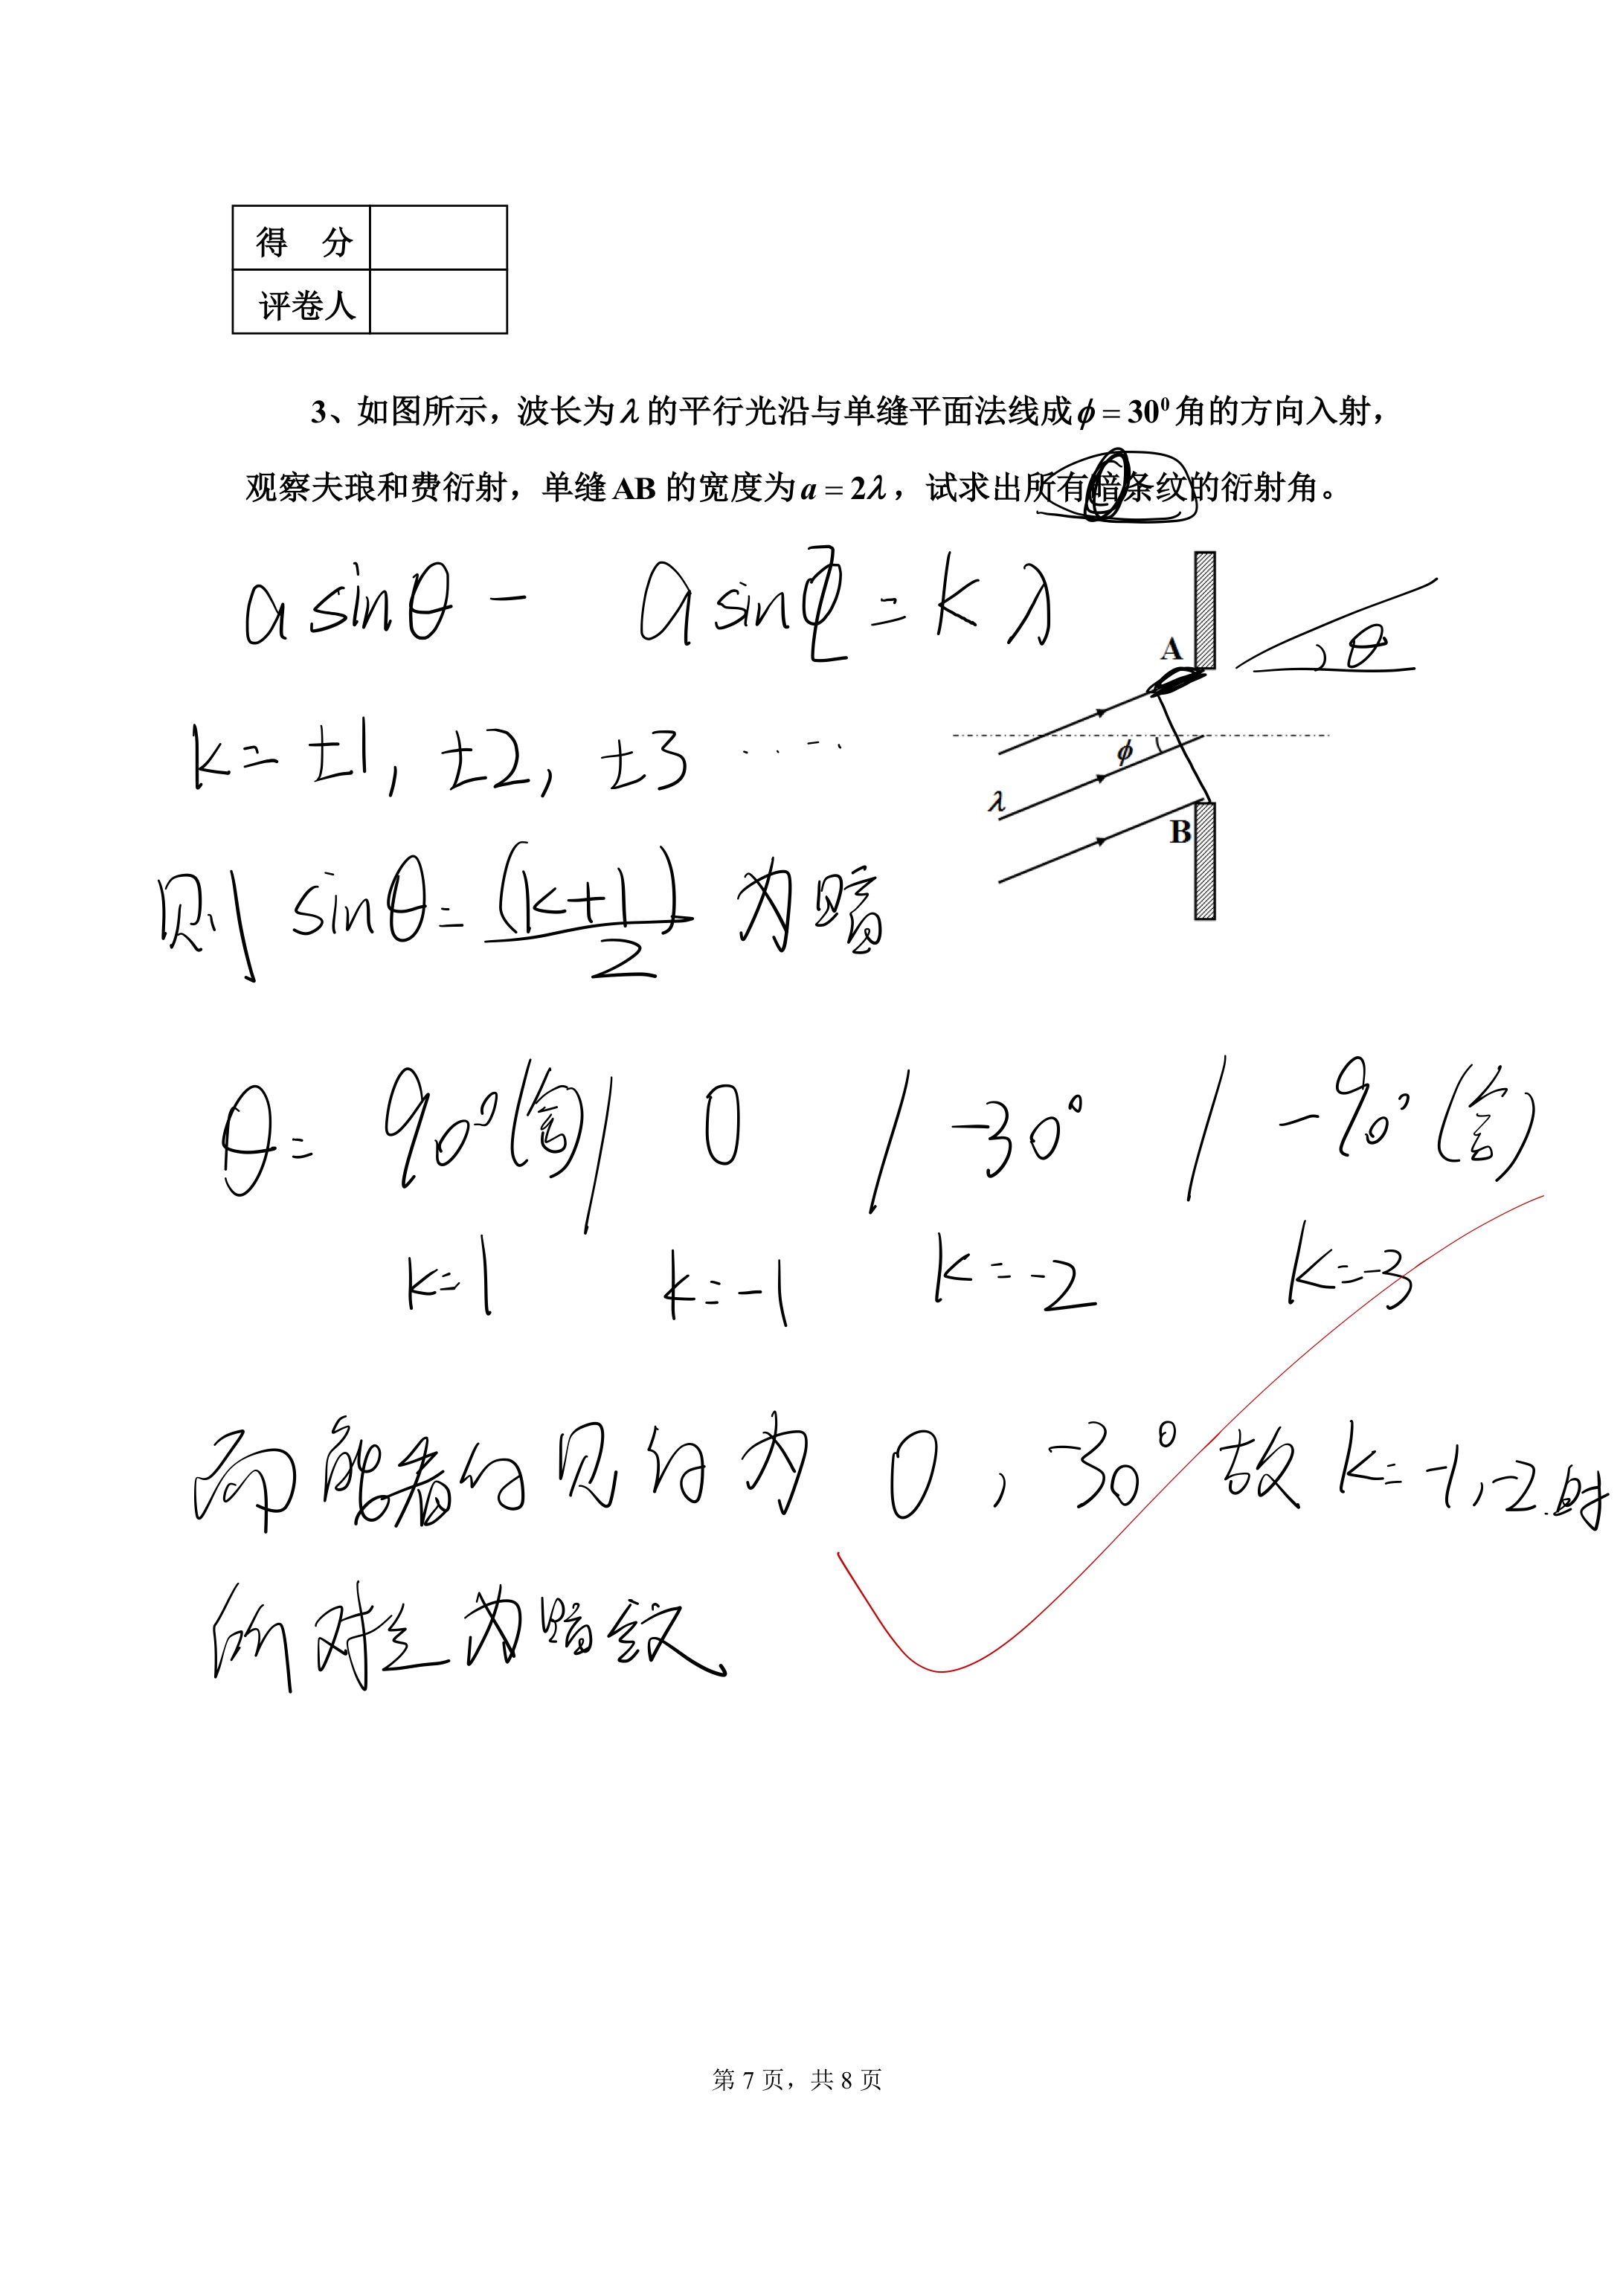 得 分
评卷人
3、如图所示，波长为 λ 的平行光沿与单缝平面法线成 ϕ = 30⁰ 角的方向入射，
观察夫琅和费衍射，单缝 AB 的宽度为 a = 2λ，试求出所有暗条纹的衍射角。
a sinθ - a sinϕ = kλ
A
θ
k = ±1, ±2, ±3 ……
ϕ
λ
B
则 sinθ = (k+1)/2 为暗
θ = 90°(舍) / 0 / -30° / -90° (舍)
k=1 k=-1 k=-2 k=-3
而能看的见的为 0, -30° 故 k=-1,-2 时
所对应为暗纹
第 7 页，共 8 页